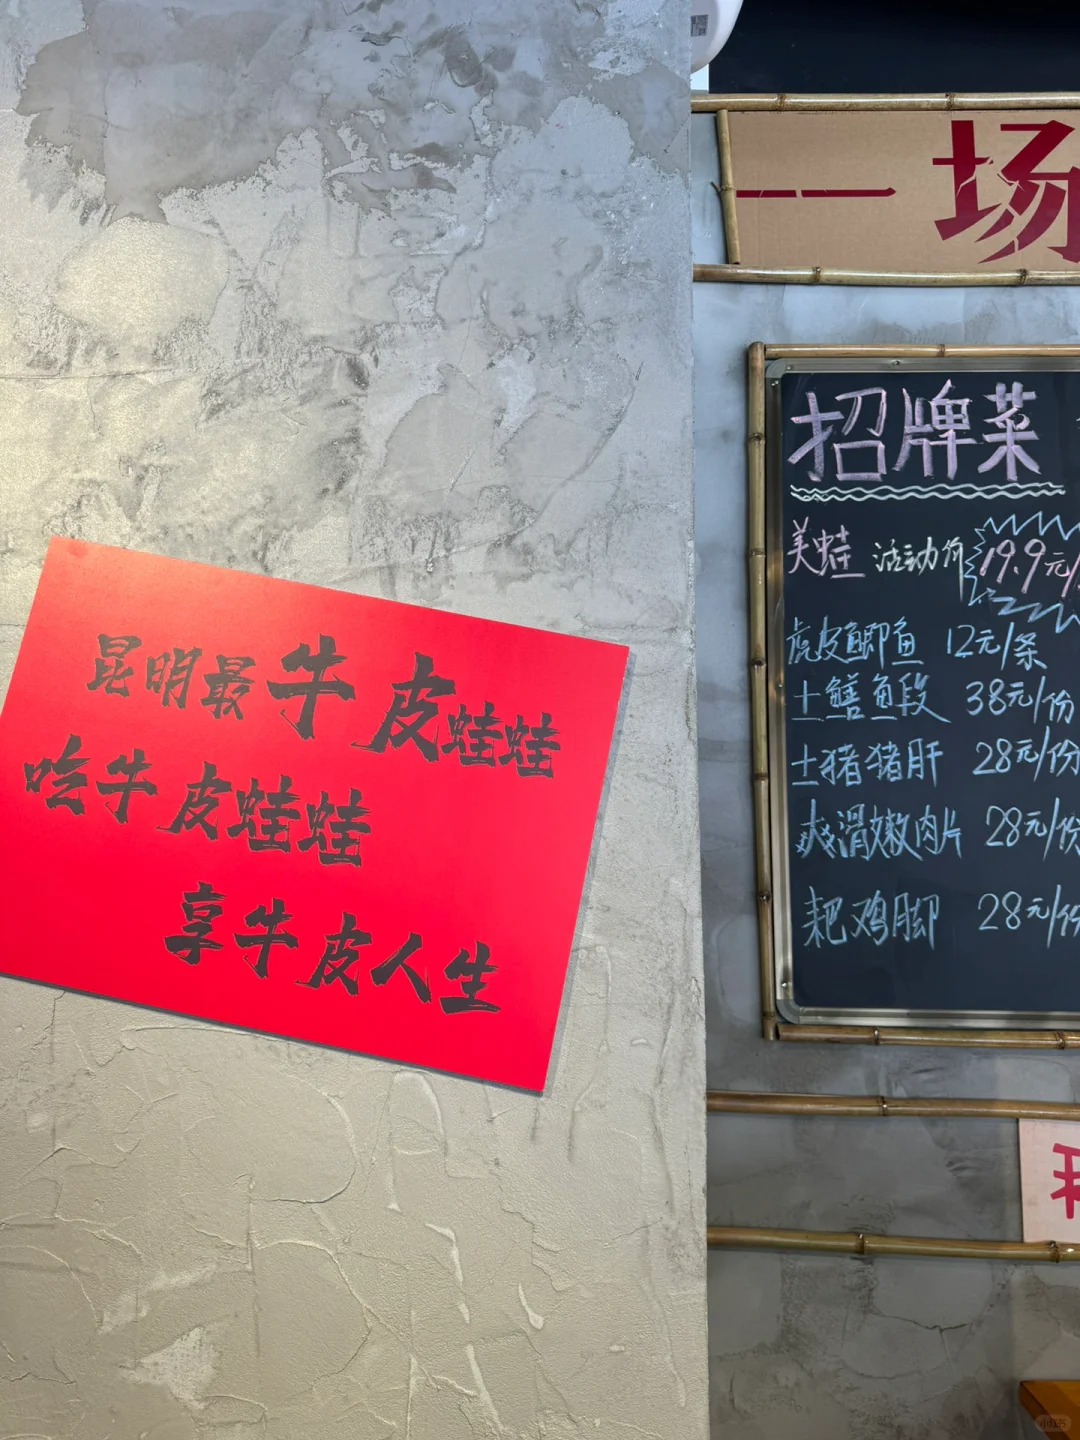 昆明最牛皮蛙蛙
吃牛皮蛙蛙
享牛皮人生
一场
招牌菜
美蛙 活动价 19.9元/
虎皮鲫鱼 12元/条
土鳝鱼段 38元/份
土猪猪肝 28元/份
爽滑嫩肉片 28元/份
耙鸡脚 28元/份